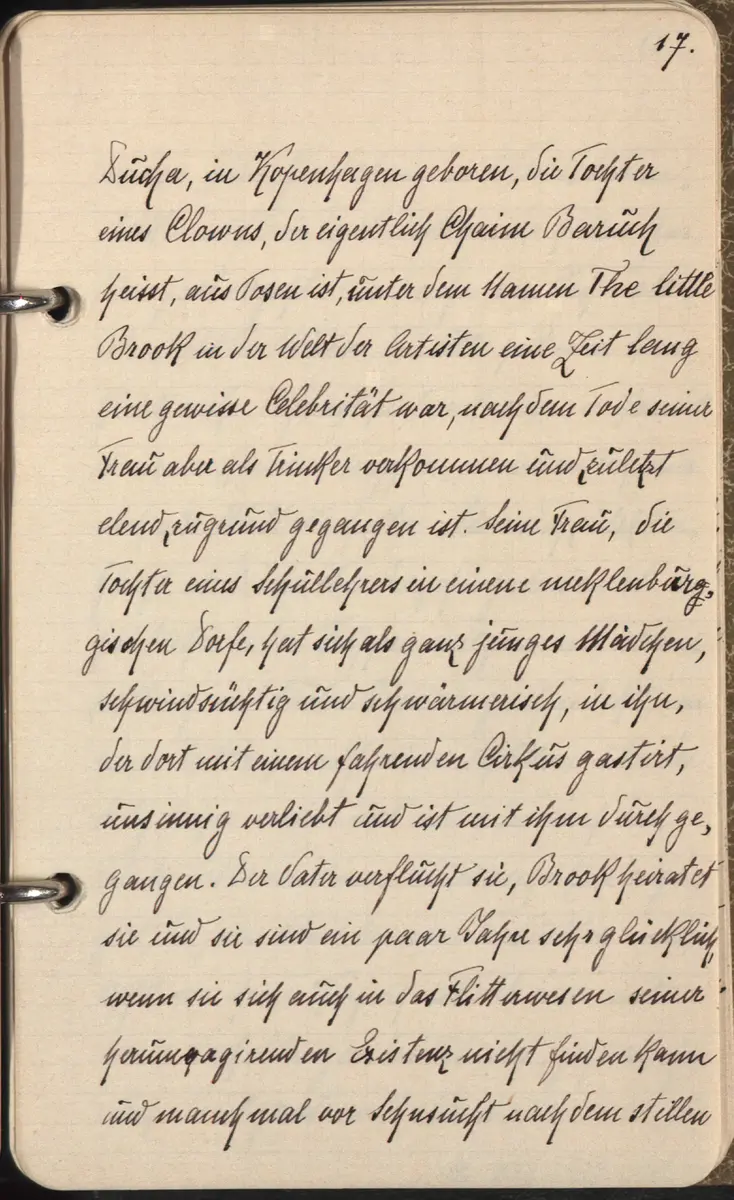 17.
Ducha, in Kopenhagen geboren, die Tochter
eines Clowns, der eigentlich Chaim Baruch
heisst, aus Posen ist, unter dem Namen The little
Brook in der Welt der Artisten eine Zeit lang
eine gewisse Celebrität war, nach dem Tode seiner
Frau aber als Trinker verkommen und zuletzt
elend zugrund gegangen ist. Seine Frau, die
Tochter eines Schullehrers in einem meklenburg-
gischen Dorfe, hat sich als ganz junges Mädchen,
schwindsüchtig und schwärmerisch, in ihn,
der dort mit einem fahrenden Cirkus gastirt,
unsinnig verliebt und ist mit ihm durchge-
gangen. Der Vater verflucht sie, Brook heiratet
sie und sie sind ein paar Jahre sehr glücklich,
wenn sie sich auch in das Flitterwesen seiner
herumvagirenden Existenz nicht finden kann
und manchmal vor Sehnsucht nach dem stillen